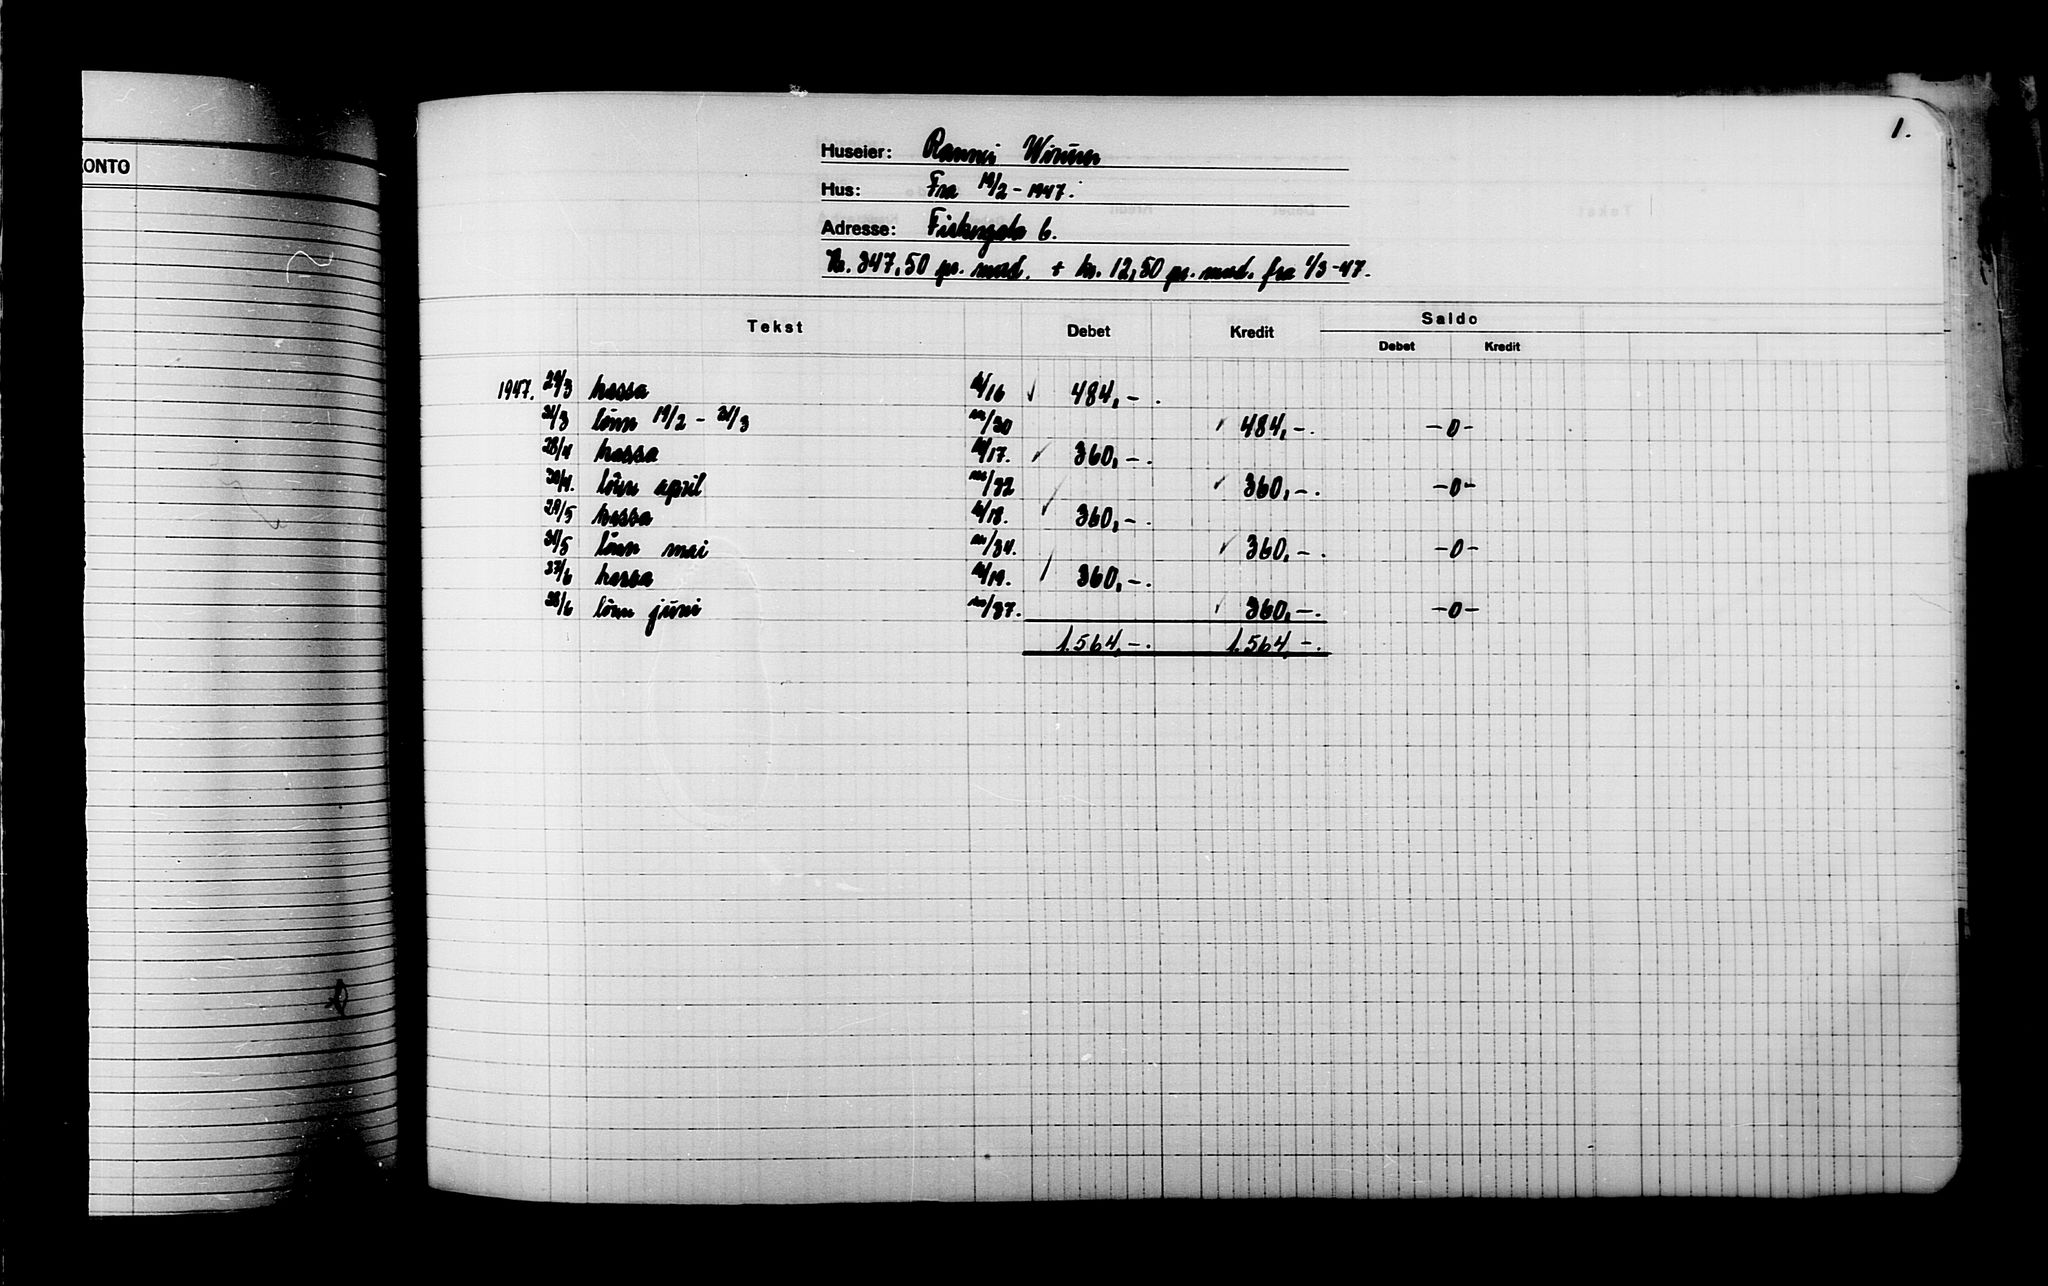 KONTO
1.
Huseier: Rannei
Hus: Fra 19/2 - 1947.
Adresse: 6.
Kr. 347,50 pr. mnd. + kr. 12,50 pr. mnd. fra 1/3-47.
Tekst Debet Kredit Saldo
Debet Kredit
1947. 29/3 kassa /16 484,-.
31/3 lönn 19/2 - 31/3 /30 484,-. -0-
28/4 kassa /17. 360,-.
30/4. lönn april /32 360,-. -0-
29/5 kassa /18. 360,-.
31/5 lönn mai /34. 360,-. -0-
27/6 kassa /19. 360,-.
28/6 lönn juni /37. 360,-. -0-
1.564,-. 1.564,-.